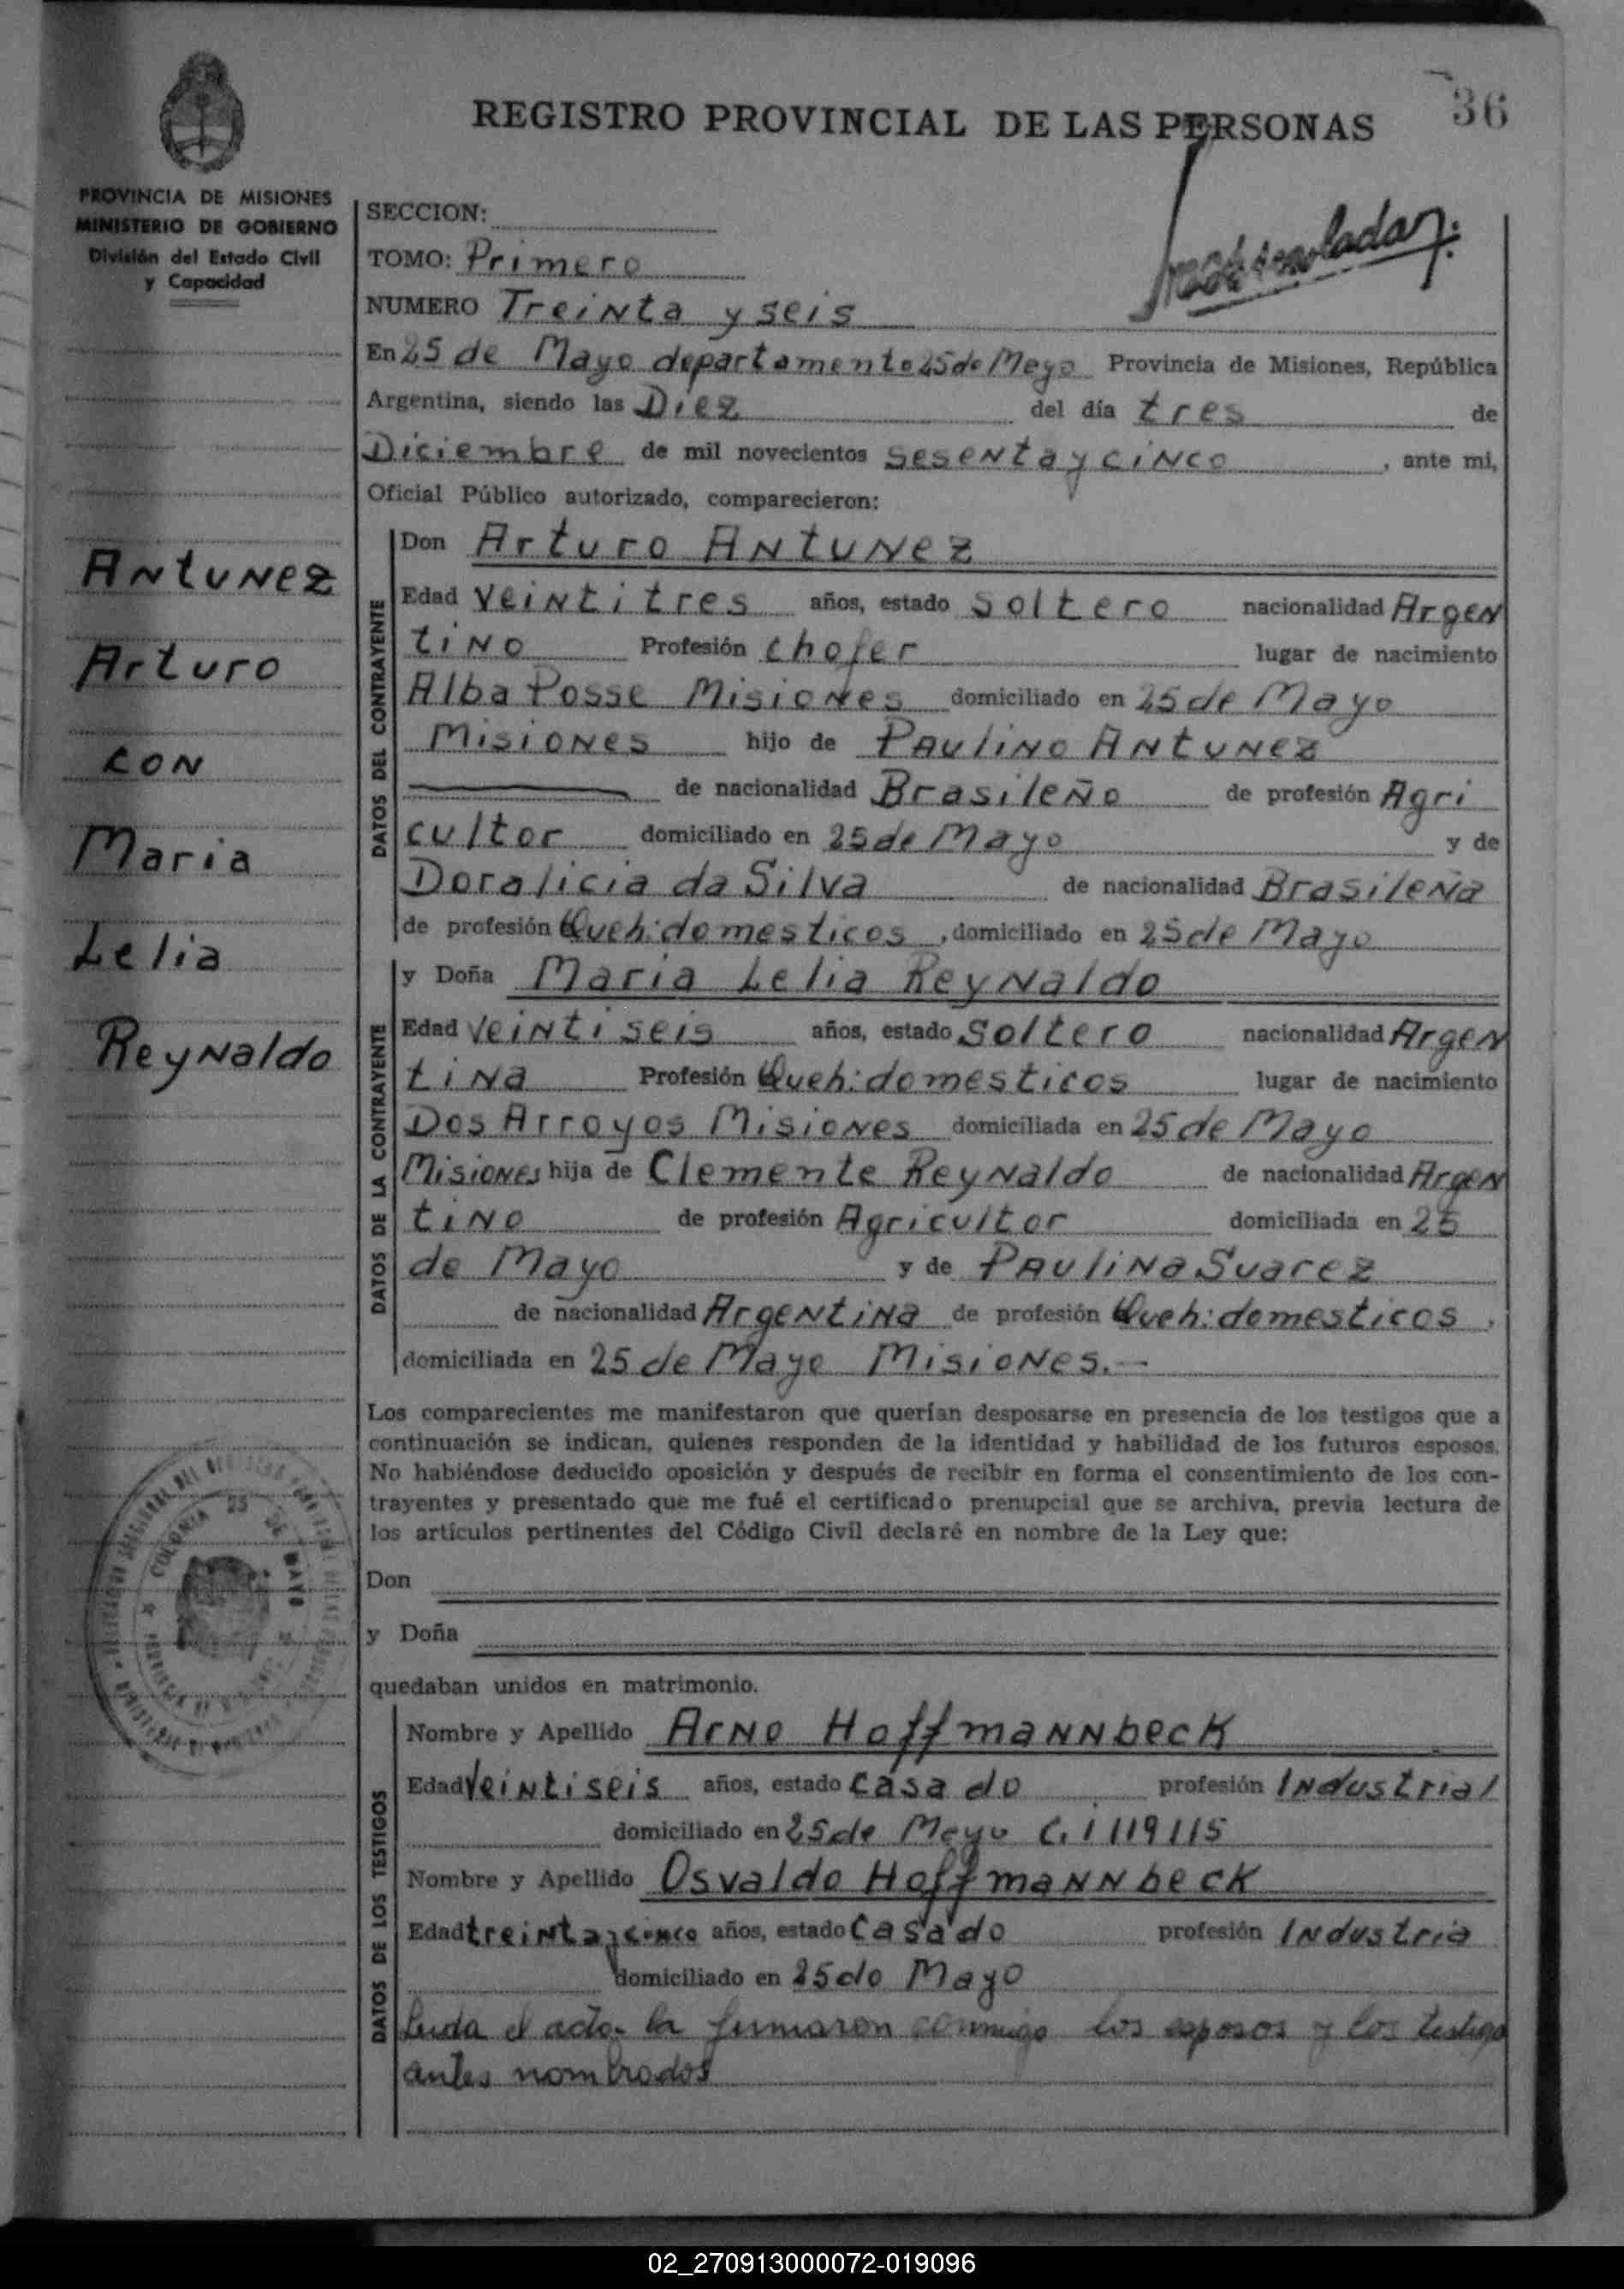 36
REGISTRO PROVINCIAL DE LAS PERSONAS
PROVINCIA DE MISIONES
MINISTERIO DE GOBIERNO
División del Estado Civil
y Capacidad
SECCION:
TOMO: Primero
NUMERO Treinta y seis
En 25 de Mayo departamento 25 de Mayo Provincia de Misiones, República
Argentina, siendo las Diez del día tres de
Diciembre de mil novecientos sesenta y cinco, ante mi,
Oficial Público autorizado, comparecieron:
Antunez
Arturo
con
Maria
Lelia
Reynaldo
DATOS DEL CONTRAYENTE
Don Arturo ANtuNez
Edad veintitres años, estado soltero nacionalidad Argen
tino Profesión chofer lugar de nacimiento
Alba Posse Misiones domiciliado en 25 de Mayo
Misiones hijo de Paulino Antunez
de nacionalidad Brasileño de profesión Agri
cultor domiciliado en 25 de Mayo y de
Doralicia da Silva de nacionalidad Brasileña
de profesión Queh: domesticos, domiciliado en 25 de Mayo
DATOS DE LA CONTRAYENTE
y Doña Maria Lelia Reynaldo
Edad veintiseis años, estado soltero nacionalidad Argen
tina Profesión Queh: domesticos lugar de nacimiento
Dos Arroyos Misiones domiciliada en 25 de Mayo
Misiones hija de Clemente Reynaldo de nacionalidad Argen
tino de profesión Agricultor domiciliada en 25
de Mayo y de Paulina Suarez
de nacionalidad Argentina de profesión Queh: domesticos,
domiciliada en 25 de Mayo Misiones.—
Los comparecientes me manifestaron que querían desposarse en presencia de los testigos que a
continuación se indican, quienes responden de la identidad y habilidad de los futuros esposos.
No habiéndose deducido oposición y después de recibir en forma el consentimiento de los con-
trayentes y presentado que me fué el certificado prenupcial que se archiva, previa lectura de
los artículos pertinentes del Código Civil declaré en nombre de la Ley que:
Don
y Doña
quedaban unidos en matrimonio.
COLONIA 25 DE MAYO
DATOS DE LOS TESTIGOS
Nombre y Apellido Arno Hoffmannbeck
Edad veintiseis años, estado casado profesión Industrial
domiciliado en 25 de Mayo C.i 119115
Nombre y Apellido Osvaldo Hoffmannbeck
Edad treinta y cinco años, estado casado profesión Industria
domiciliado en 25 de Mayo
Leida el acta la firmaron conmigo los esposos y los testigos
antes nombrados
02_270913000072-019096